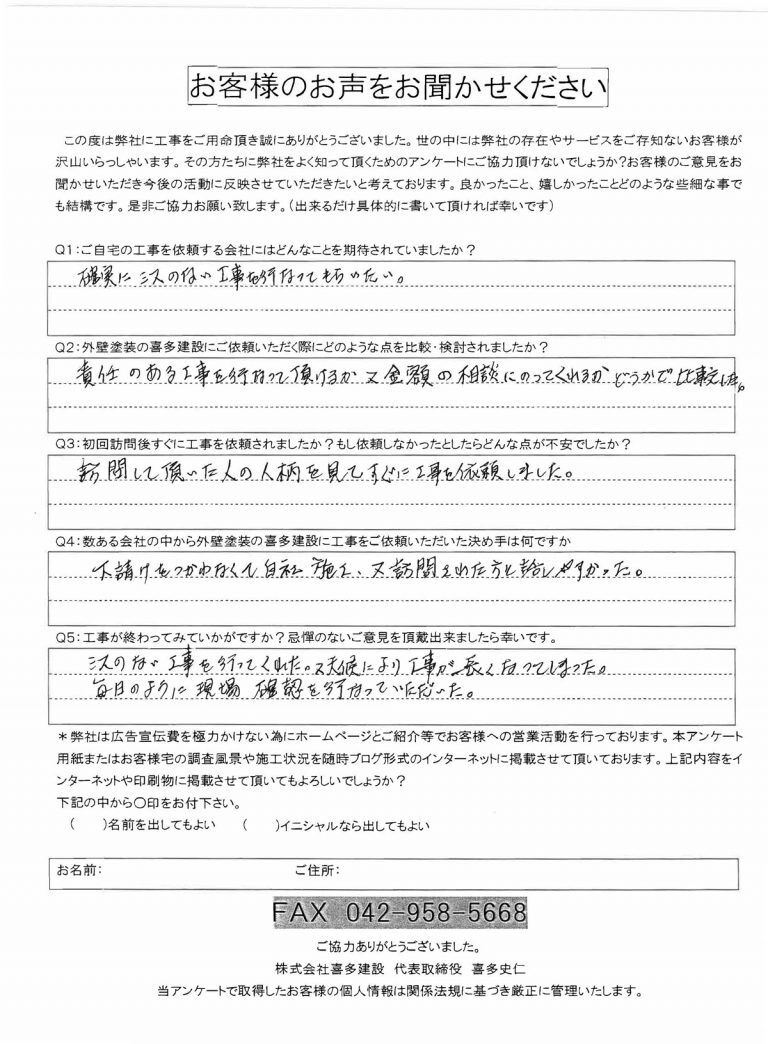 お客様のお声をお聞かせください
この度は弊社に工事をご用命頂き誠にありがとうございました。世の中には弊社の存在やサービスをご存知ないお客様が
沢山いらっしゃいます。その方たちに弊社をよく知って頂くためのアンケートにご協力頂けないでしょうか?お客様のご意見をお
聞かせいただき今後の活動に反映させていただきたいと考えております。良かったこと、嬉しかったことどのような些細な事で
も結構です。是非ご協力お願い致します。(出来るだけ具体的に書いて頂ければ幸いです)
Q1:ご自宅の工事を依頼する会社にはどんなことを期待されていましたか?
確実にミスのない工事を行なってもらいたい。
Q2:外壁塗装の喜多建設にご依頼いただく際にどのような点を比較・検討されましたか?
責任のある工事を行なって頂けるか又金額の相談にのってくれるかどうかで比較した。
Q3:初回訪問後すぐに工事を依頼されましたか?もし依頼しなかったとしたらどんな点が不安でしたか?
訪問して頂いた人の人柄を見てすぐに工事を依頼しました。
Q4:数ある会社の中から外壁塗装の喜多建設に工事をご依頼いただいた決め手は何ですか
下請けをつかわなくて自社施工、又訪問された方と話しやすかった。
Q5:工事が終わってみていかがですか?忌憚のないご意見を頂戴出来ましたら幸いです。
ミスのない工事を行ってくれた。又天候により工事が長くなってしまった。
毎日のように現場確認を行なっていただいた。
*弊社は広告宣伝費を極力かけない為にホームページとご紹介等でお客様への営業活動を行っております。本アンケート
用紙またはお客様宅の調査風景や施工状況を随時ブログ形式のインターネットに掲載させて頂いております。上記内容をイ
ンターネットや印刷物に掲載させて頂いてもよろしいでしょうか?
下記の中から○印をお付下さい。
( )名前を出してもよい ( )イニシャルなら出してもよい
お名前: ご住所:
FAX 042-958-5668
ご協力ありがとうございました。
株式会社喜多建設 代表取締役 喜多史仁
当アンケートで取得したお客様の個人情報は関係法規に基づき厳正に管理いたします。